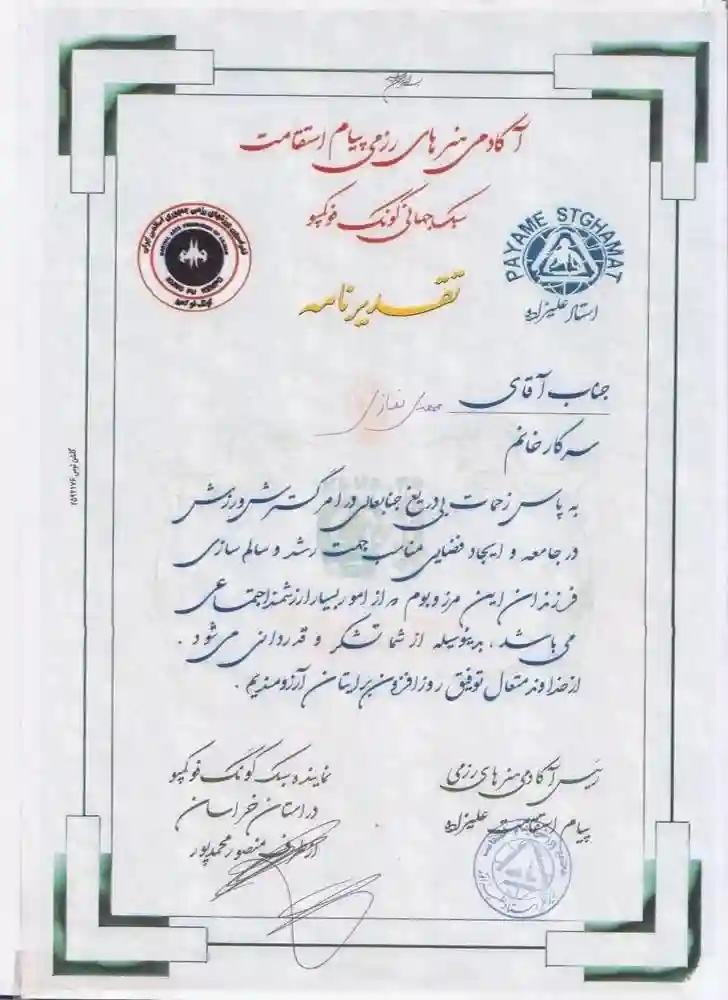 آکادمی هنرهای رزمی پیام استقامت
سبک جهانی کونگ فو کمپو
تقدیرنامه
PAYAME STGHAMAT
استاد علیزاده
فدراسیون ورزشهای رزمی جمهوری اسلامی ایران
KUNG FU KEMPO
کونگ فو کمپو
جناب آقای
سرکار خانم
به پاس زحمات بی دریغ جنابعالی در امر گسترش ورزش
در جامعه و ایجاد فضایی مناسب جهت رشد و سالم سازی
فرزندان این مرز و بوم که از امور بسیار ارزشمند اجتماعی
می باشد ، بدینوسیله از شما تشکر و قدردانی می شود .
از خداوند متعال توفیق روزافزون برایتان آرزومندیم .
رئیس آکادمی هنرهای رزمی
پیام استقامت علیزاده
نماینده سبک کونگ فو کمپو
در استان خراسان
از طرف منصور محمدپور